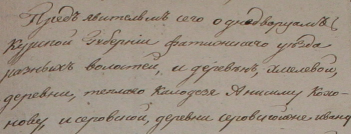 Предъявительмъ сего однодворцамъ
Курской Губерніи фатижскаго уѣзда
разныхъ волостей, и деревнь, хмелевой,
деревни, теплаго Колодезя Анисиму Коло-
нову, и серовской, деревни серовской же ивану